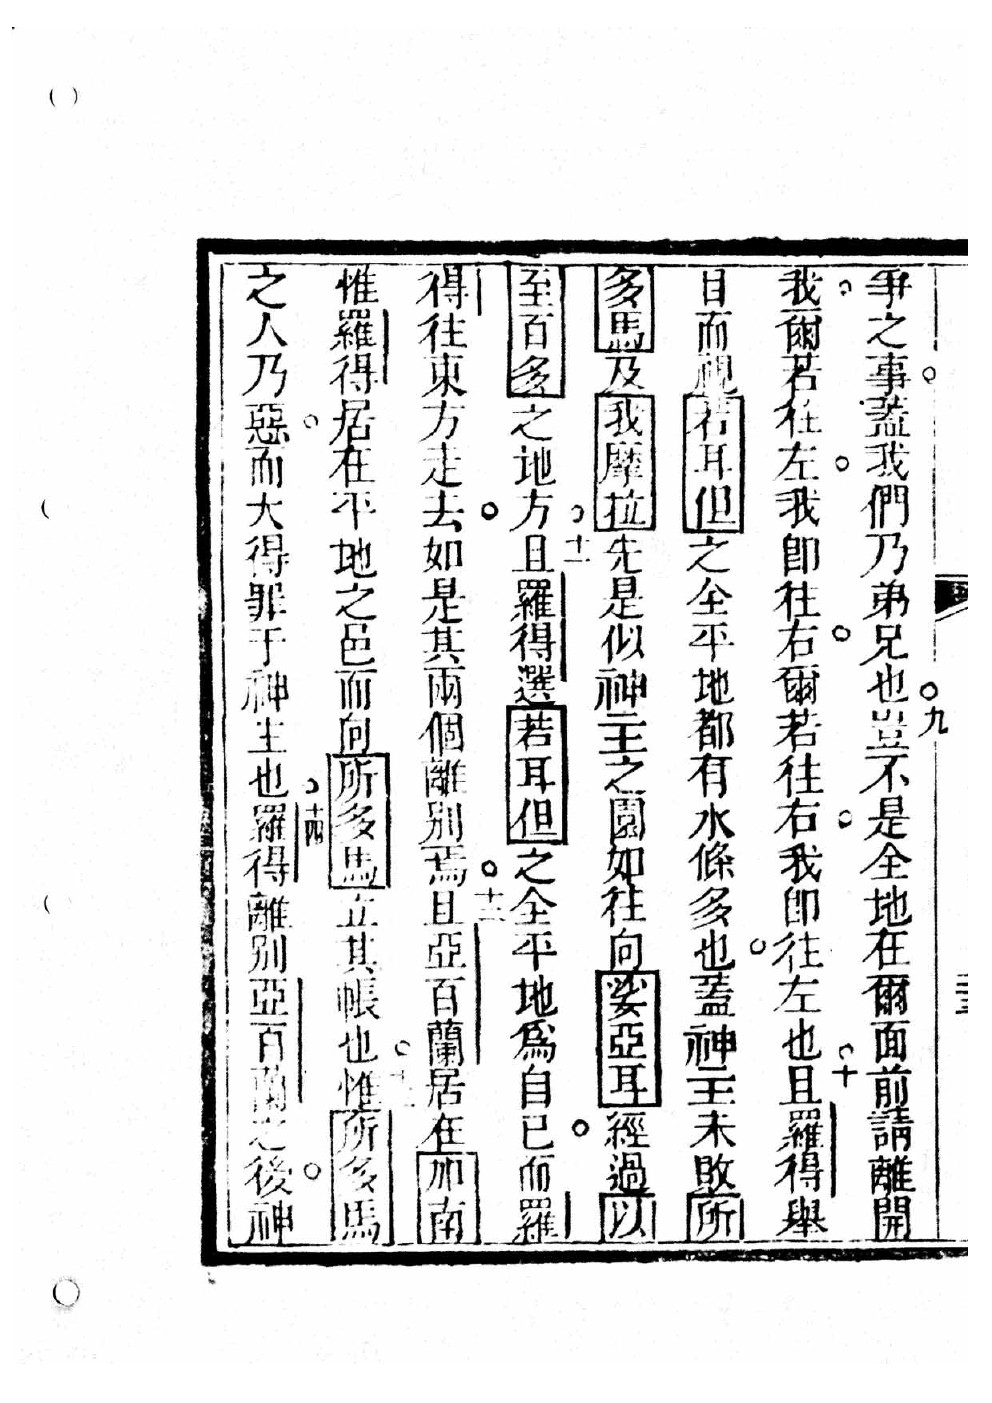 爭之事蓋我們乃弟兄也○九豈不是全地在爾面前請離開
我○爾若往左○我即往右○爾若往右○我即往左也○十且羅得舉
目而視若耳但之全平地都有水條多也○蓋神主未敗所
多馬及我摩拉○十一先是似神主之園如往向娑亞耳經過以
至百多之地方○且羅得選若耳但之全平地爲自己○而羅
得往東方走去○如是其兩個離別焉○十二且亞百蘭居在加南
惟羅得居在平地之邑而向所多馬立其帳也○十三惟所多馬
之人乃惡○而大得罪于神主也○十四羅得離別亞百蘭之後○神